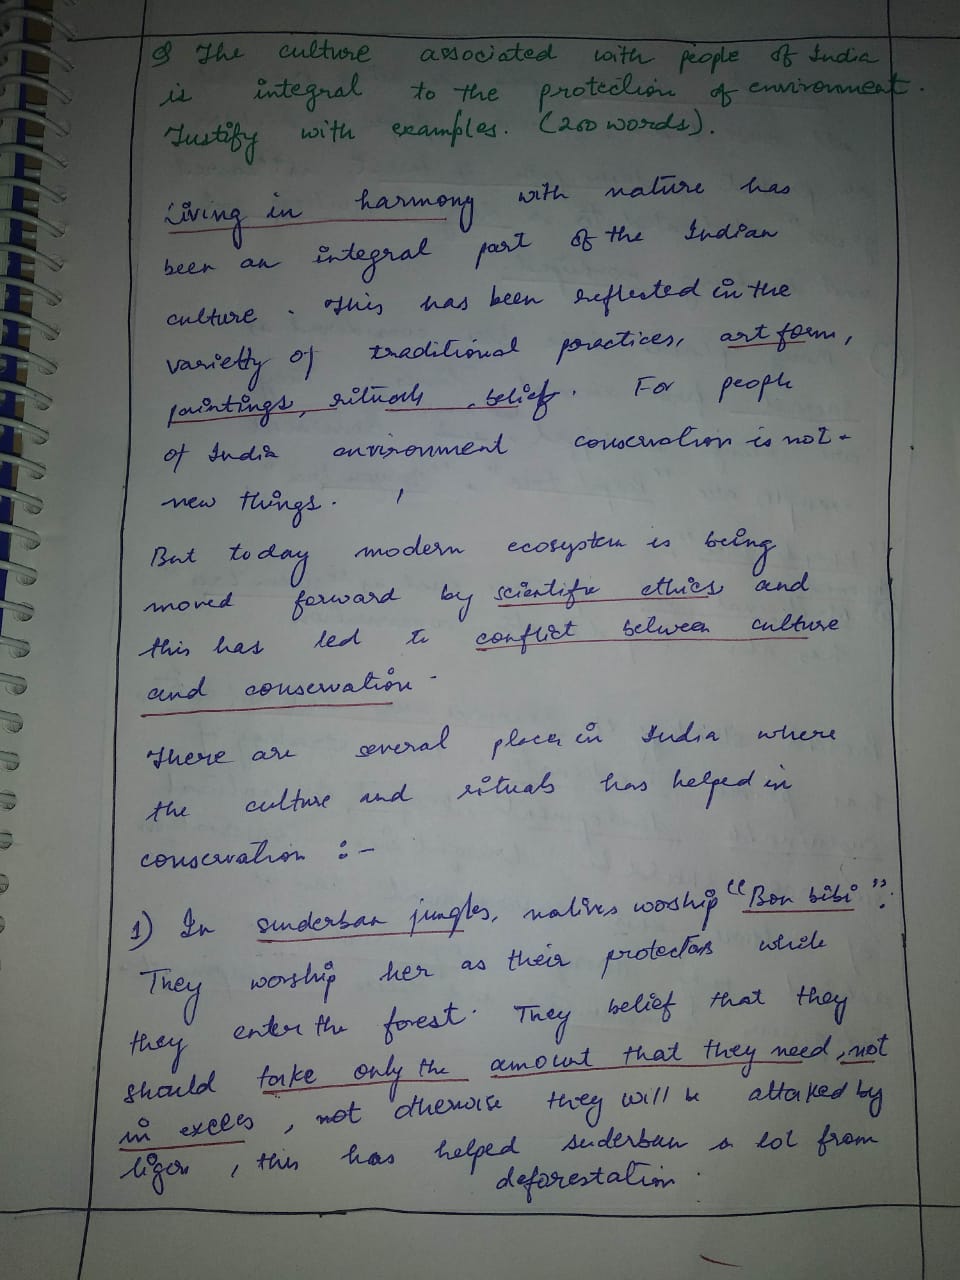 Q The culture associated with people of India
is integral to the protection of environment.
Justify with examples. (200 words).
Living in harmony with nature has
been an integral part of the Indian
culture. This has been reflected in the
varietty of traditional practices, art form,
paintings, rituals, belief. For people
of India environment conservation is not
new things.
But today modern ecosystem is being
moved forward by scientific ethics and
this has led to conflict between culture
and conservation.
There are several places in India where
the culture and rituals has helped in
conservation :-
1) In sunderban jungles, natives worship "Bon bibi".
They worship her as their protectors while
they enter the forest. They belief that they
should take only the amount that they need, not
in excess, not otherwise they will be attaked by
tiger, this has helped suderban a lot from
deforestation.